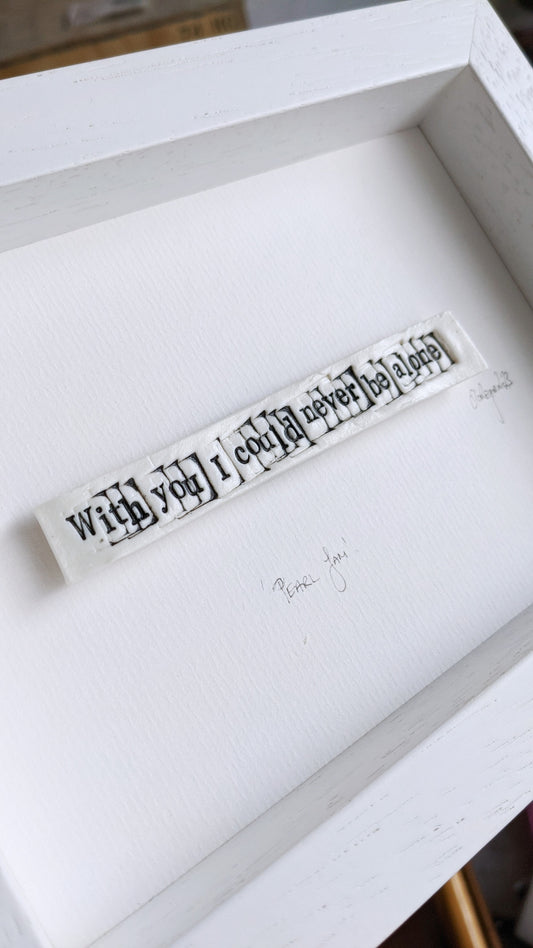 With you I could never be alone
'PEARL JAM'